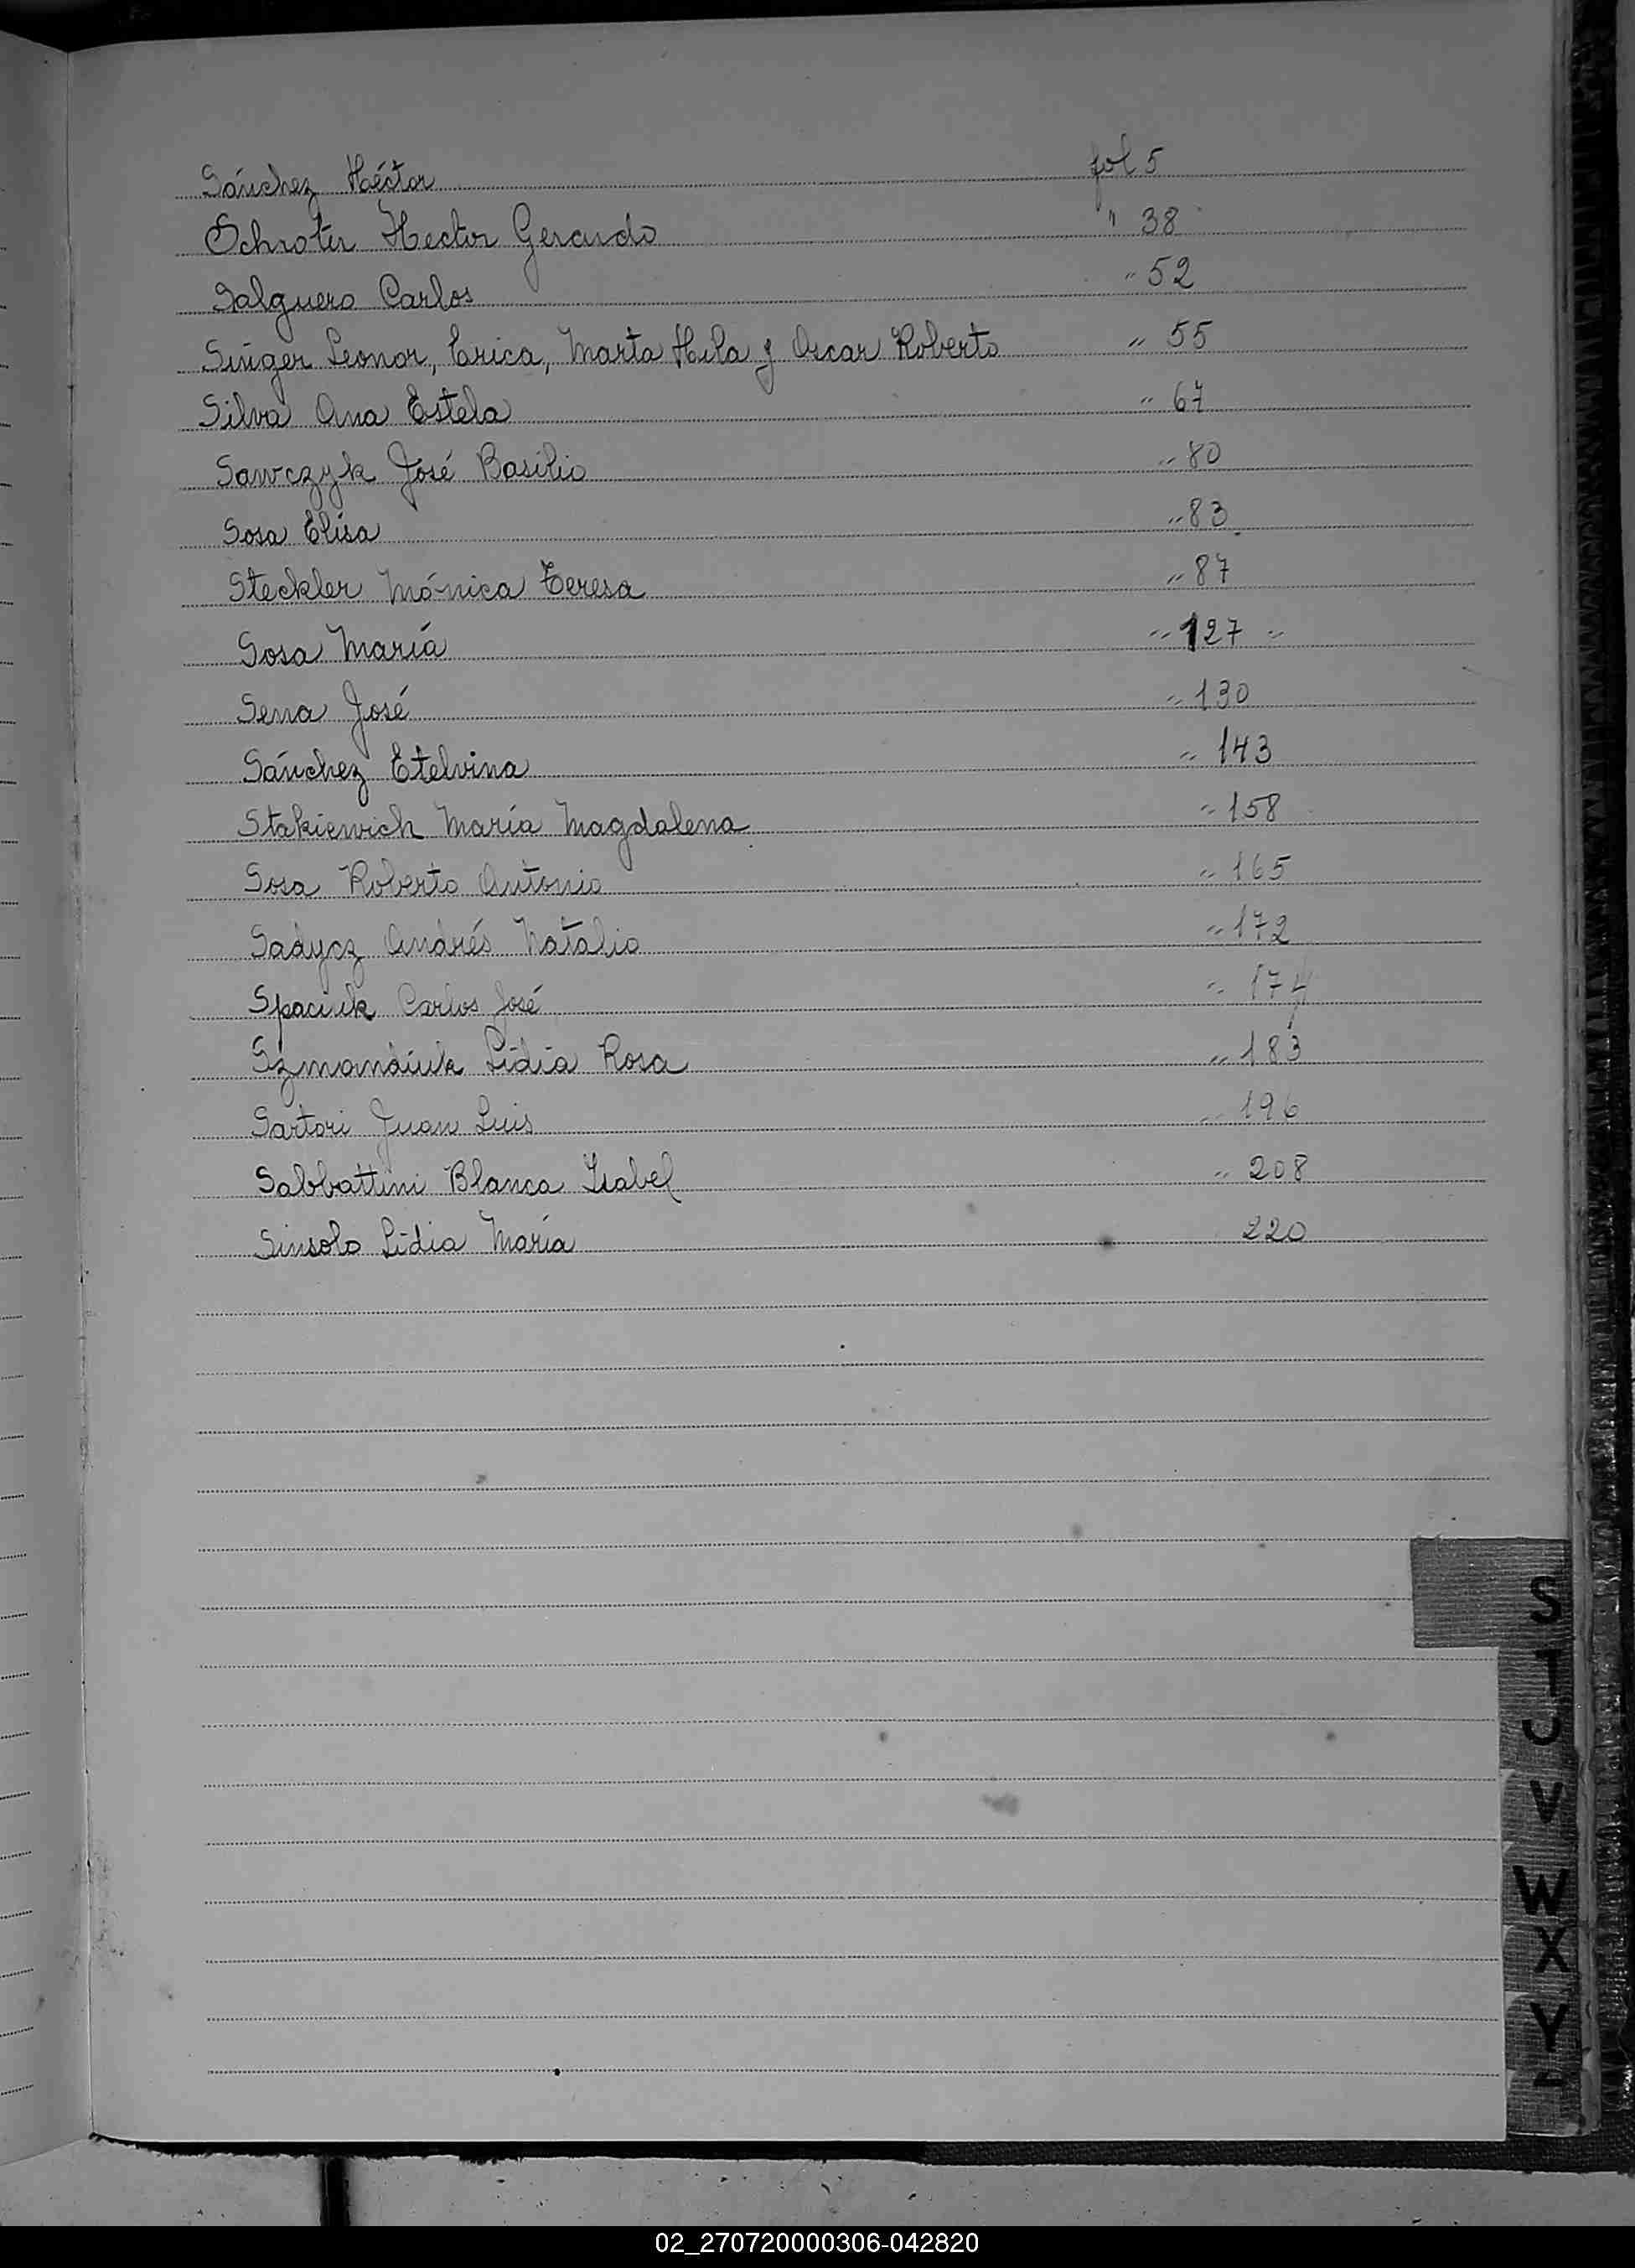 Sánchez Héctor fol 5
Schroter Hector Gerardo " 38
Salguero Carlos " 52
Singer Leonor, Erica, Marta Hila y Oscar Roberto " 55
Silva Ana Estela " 67
Sawczyk José Basilio " 80
Sosa Elisa " 83
Steckler Mónica Teresa " 87
Sosa María " 127 "
Sena José " 130
Sánchez Etelvina " 143
Stakiewich María Magdalena " 158
Sosa Roberto Antonio " 165
Sadycz Andrés Natalio " 172
Spaciuk Carlos José " 174
Szmandiuk Lidia Rosa " 183
Sartori Juan Luis " 196
Sabbattini Blanca Isabel " 208
Sinsolo Lidia María 220
S
T
U
V
W
X
Y
02_270720000306-042820